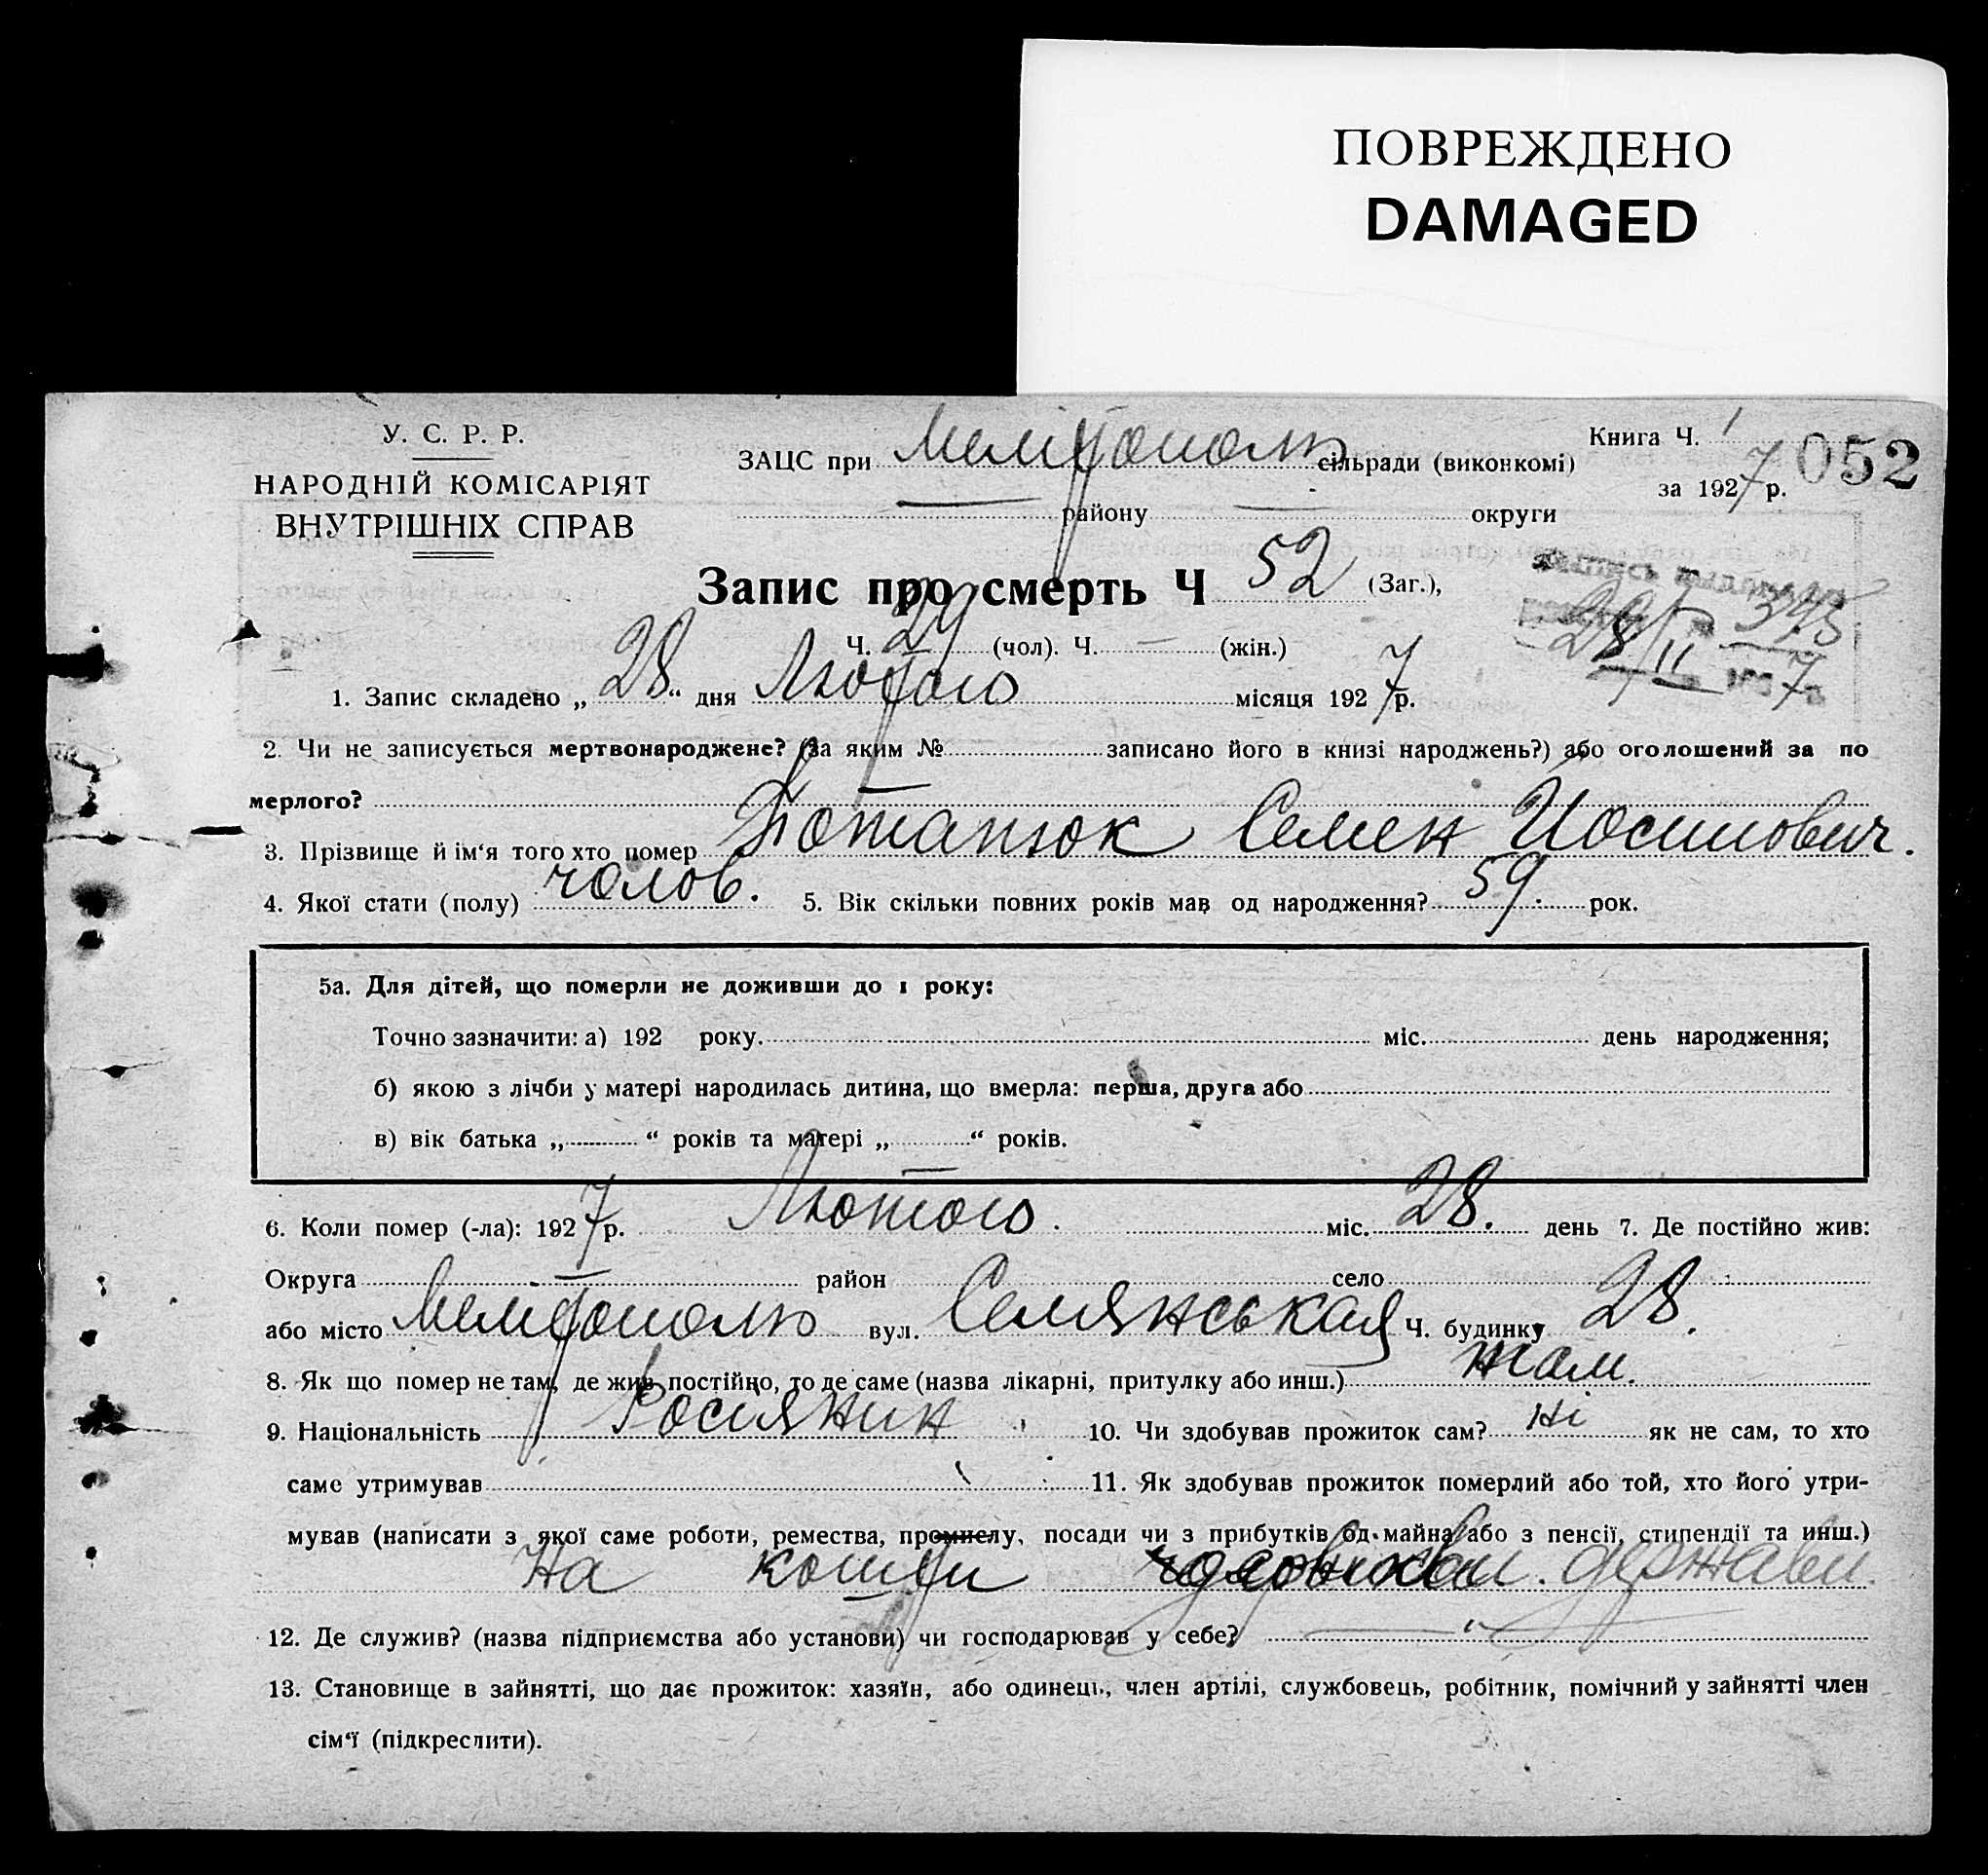 ПОВРЕЖДЕНО
DAMAGED
У. С. Р. Р.
НАРОДНІЙ КОМІСАРІЯТ
ВНУТРІШНІХ СПРАВ
ЗАЦС при Мелітополю сільради (виконкомі)
району округи
Книга Ч. 1
за 1927 р.
052
Запис про смерть Ч 52 (Заг.),
Ч. 29 (чол). Ч. — (жін.)
28/II 1927
1. Запис складено „ 28 “ дня Лютого місяця 1927 р.
2. Чи не записується мертвонароджене? (За яким № записано його в книзі народжень?) або оголошений за по
мерлого?
3. Прізвище й ім‘я того хто помер Потапюк Семен Йосипович.
4. Якої стати (полу) чолов. 5. Вік скільки повних років мав од народження? 59. рок.
5а. Для дітей, що померли не доживши до 1 року:
Точно зазначити: а) 192 року. міс. день народження;
б) якою з лічби у матері народилась дитина, що вмерла: перша, друга або
в) вік батька „ “ років та матері „ “ років.
6. Коли помер (-ла): 1927 р. Лютого. міс. 28. день 7. Де постійно жив:
Округа — район село
або місто Мелітополю вул. Ч. будинку 28.
8. Як що помер не там, де жив постійно, то де саме (назва лікарні, притулку або инш.) там.
9. Національність Росіянин 10. Чи здобував прожиток сам? ні як не сам, то хто
саме утримував 11. Як здобував прожиток померлий або той, хто його утри-
мував (написати з якої саме роботи, ремества, промислу, посади чи з прибутків од майна або з пенсії, стипендії та инш.)
На кошти держави.
12. Де служив? (назва підприємства або установи) чи господарював у себе?
13. Становище в зайнятті, що дає прожиток: хазяїн, або одинець, член артілі, службовець, робітник, помічний у зайнятті член
сім‘ї (підкреслити).